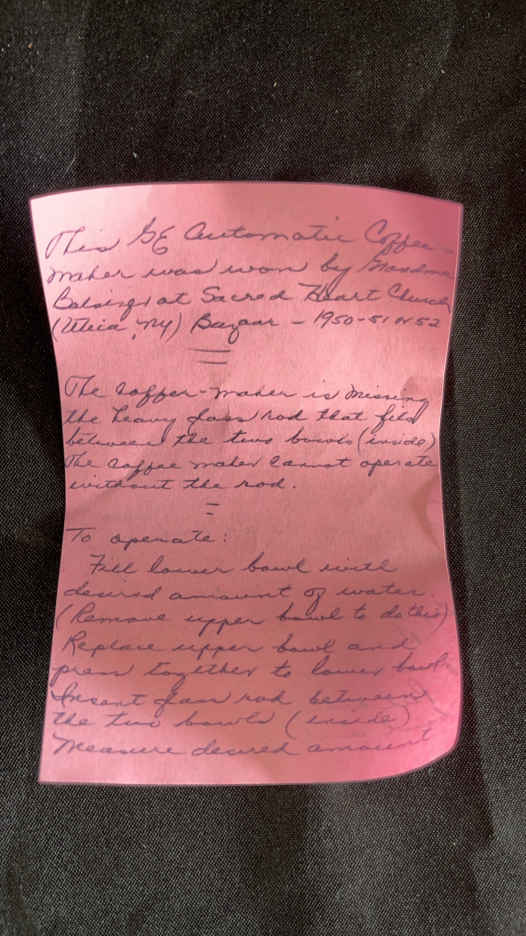 This GE Automatic Coffee
maker was won by Grandma
at Sacred Heart Church
(Utica, NY) Bazaar - 1950-51 or 52
The coffee-maker is missing
the heavy glass rod that fits
between the two bowls (inside)
The coffee maker cannot operate
without the rod.
To operate:
Fill lower bowl with
desired amount of water.
(Remove upper bowl to do this)
Replace upper bowl and
press together to lower bowl.
Insert glass rod between
the two bowls (inside)
Measure desired amount